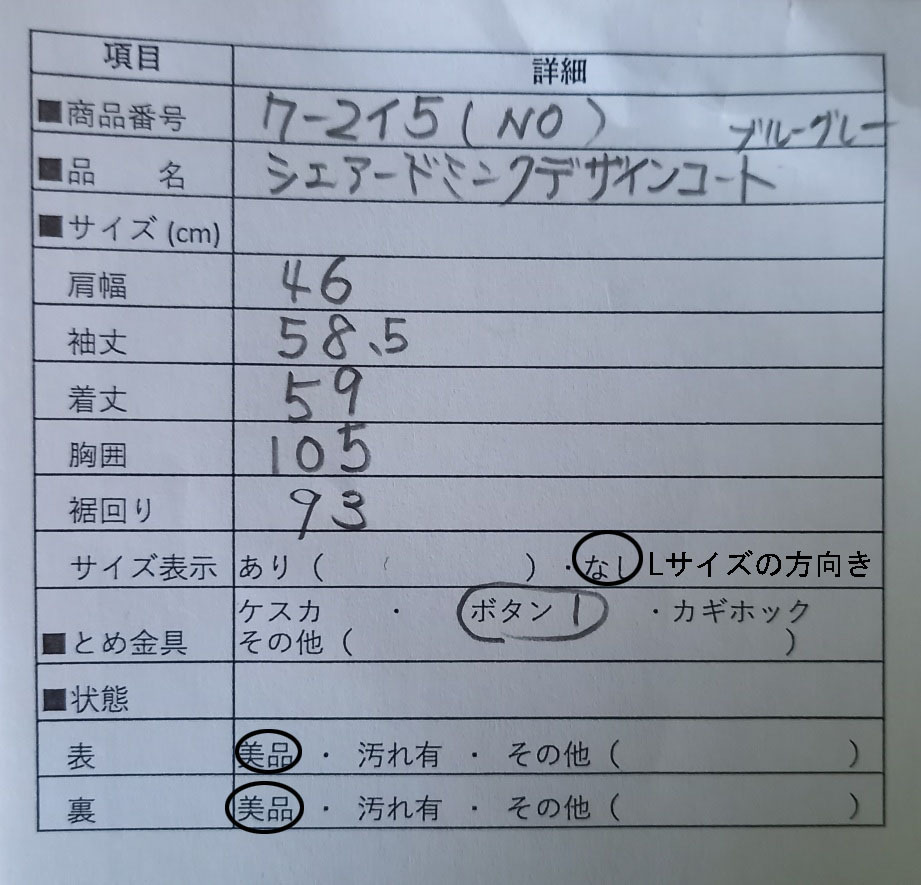 項目 詳細
■商品番号 ワ-215(NO) ブルーグレー
■品　　名 シェアードミンクデザインコート
■サイズ(cm)
肩幅 46
袖丈 58.5
着丈 59
胸囲 105
裾回り 93
サイズ表示 あり（　　　　　　）・なし Lサイズの方向き
■とめ金具 ケスカ ・ ボタン 1 ・カギホック
その他（　　　　　　　　）
■状態
表 美品 ・ 汚れ有 ・ その他（　　　　　　）
裏 美品 ・ 汚れ有 ・ その他（　　　　　　）